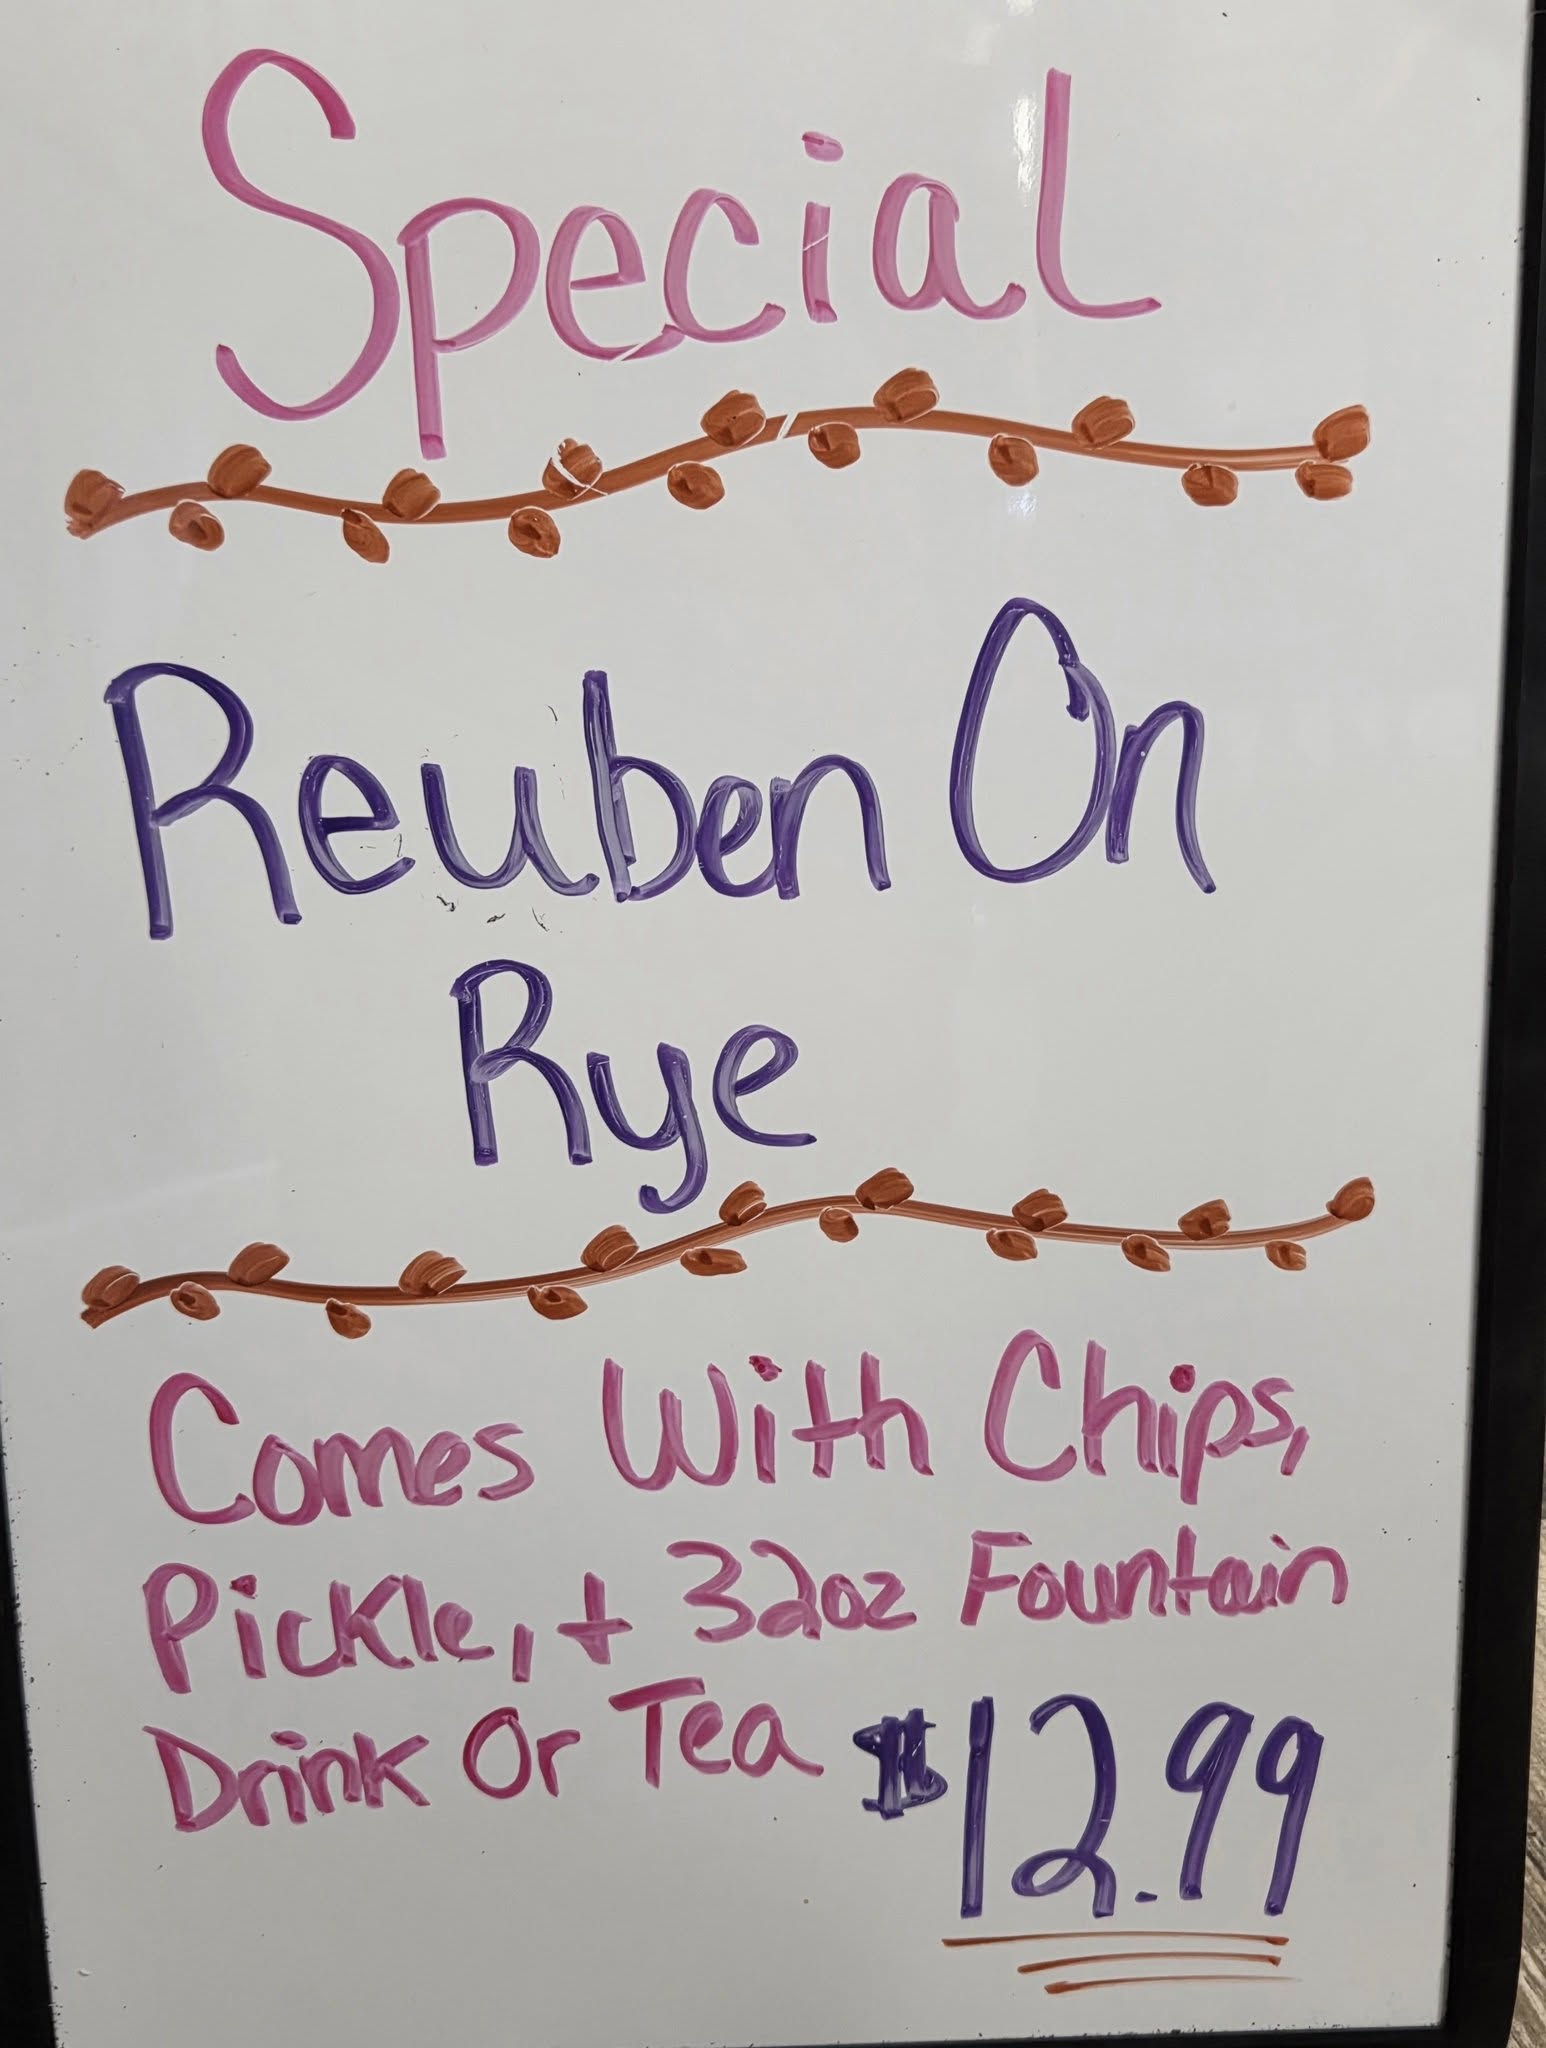 Special
Reuben On
Rye
Comes With Chips,
Pickle, + 32oz Fountain
Drink Or Tea $12.99